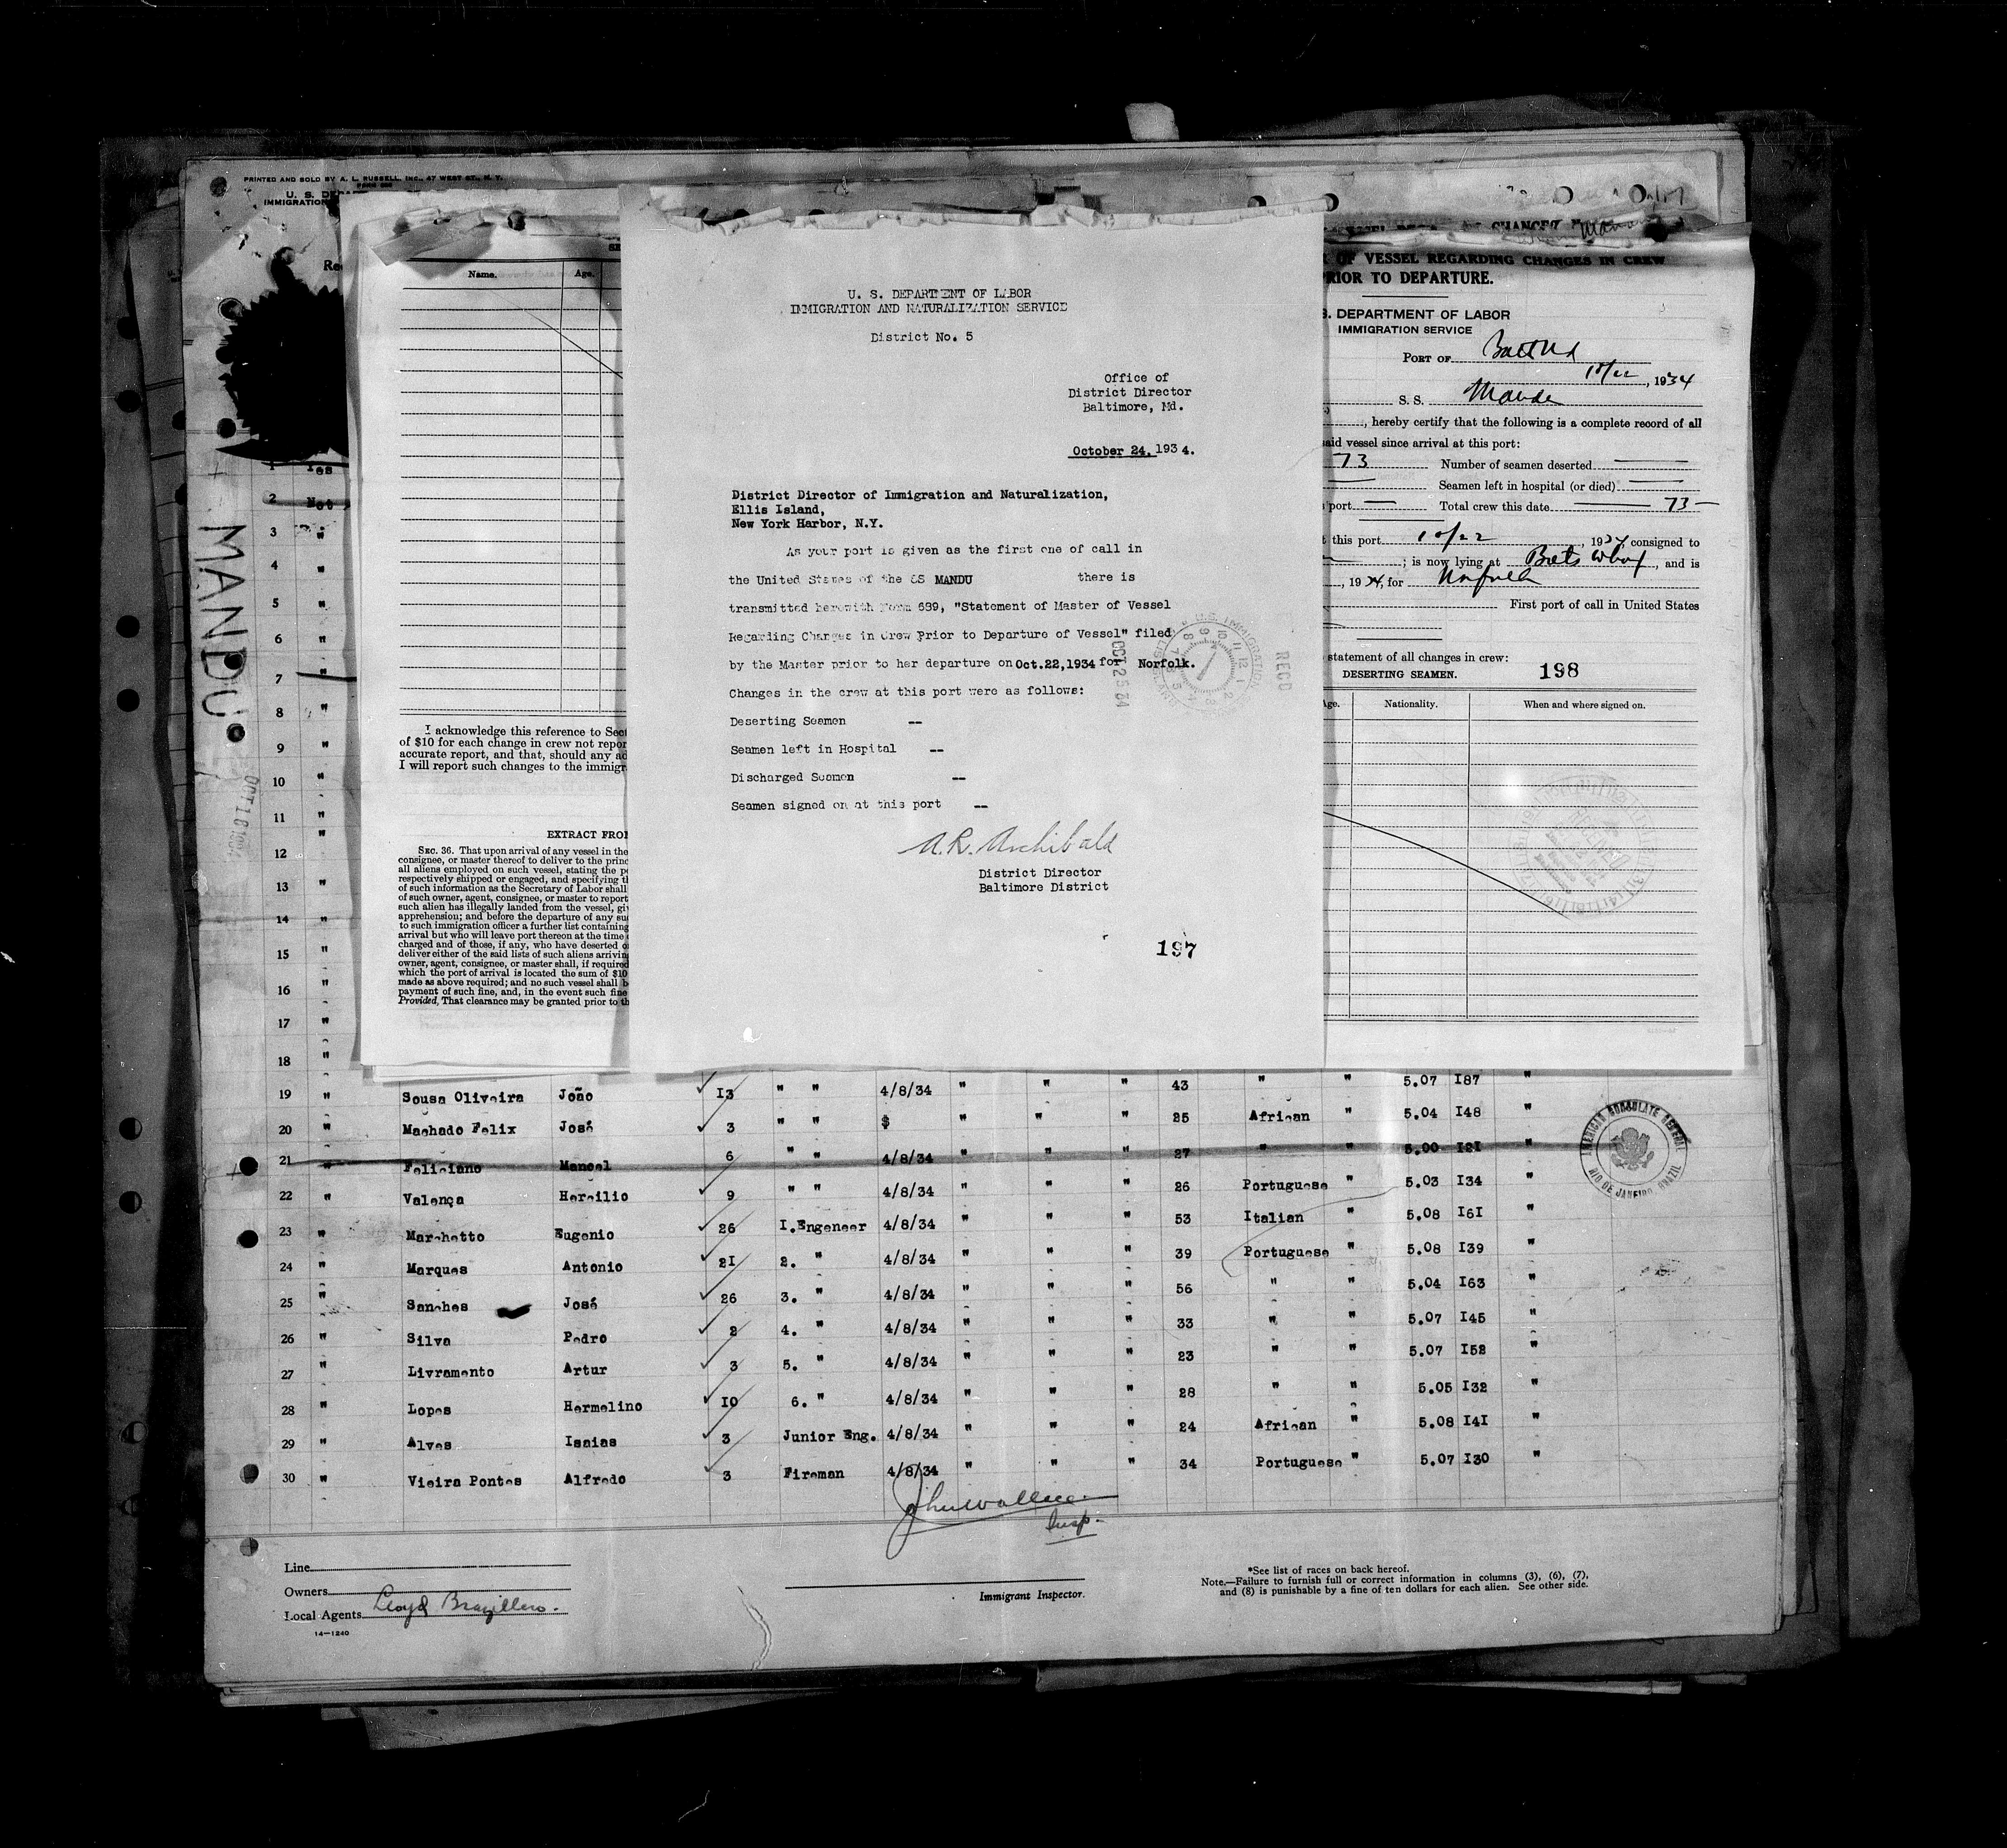 PRINTED AND SOLD BY A. L. RUSSELL, INC., 47 WEST ST., N. Y.
U. S.
IMMIGRATION
MANDU
OCT 1 1934
1 Yes
2 Not
3 "
4 "
5 "
6 "
7 "
8 "
9 "
10 "
11 "
12 "
13 "
14 "
15 "
16 "
17 "
18 "
Name. Age.
I acknowledge this reference to Sect
of $10 for each change in crew not repor
accurate report, and that, should any ad
I will report such changes to the immigr
EXTRACT FROM
SEC. 36. That upon arrival of any vessel in the
consignee, or master thereof to deliver to the princ
all aliens employed on such vessel, stating the po
respectively shipped or engaged, and specifying th
of such information as the Secretary of Labor shall
of such owner, agent, consignee, or master to report
such alien has illegally landed from the vessel, giv
apprehension; and before the departure of any suc
to such immigration officer a further list containing
arrival but who will leave port thereon at the time
charged and of those, if any, who have deserted o
deliver either of the said lists of such aliens arriving
owner, agent, consignee, or master shall, if required
which the port of arrival is located the sum of $10
made as above required; and no such vessel shall b
payment of such fine, and, in the event such fine
Provided, That clearance may be granted prior to th
U. S. DEPARTMENT OF LABOR
IMMIGRATION AND NATURALIZATION SERVICE
District No. 5
Office of
District Director
Baltimore, Md.
October 24, 1934.
District Director of Immigration and Naturalization,
Ellis Island,
New York Harbor, N.Y.
As your port is given as the first one of call in
the United States of the SS MANDU there is
transmitted herewith Form 689, "Statement of Master of Vessel
Regarding Changes in Crew Prior to Departure of Vessel" filed
by the Master prior to her departure on Oct.22,1934 for Norfolk.
Changes in the crew at this port were as follows:
Deserting Seamen --
Seamen left in Hospital --
Discharged Seamen --
Seamen signed on at this port --
A. R. Archibald
District Director
Baltimore District
197
OCT 25 34
RECD
U.S. IMMIGRATION
OF VESSEL REGARDING CHANGES IN CREW
PRIOR TO DEPARTURE.
S. DEPARTMENT OF LABOR
IMMIGRATION SERVICE
PORT OF Balto Md
10/22, 1934
S. S. Mandu
, hereby certify that the following is a complete record of all
said vessel since arrival at this port:
73 Number of seamen deserted
Seamen left in hospital (or died)
port Total crew this date 73
t this port 10/22, 1934 consigned to
; is now lying at Balto Whf, and is
, 1934, for Norfolk
First port of call in United States
statement of all changes in crew:
DESERTING SEAMEN. 198
Age. Nationality. When and where signed on.
19 " Sousa Oliveira João 13 " " 4/8/34 " " " 43 " " 5.07 187 "
20 " Machado Felix José 3 " " $ " " " 25 African " 5.04 148 "
21 " Feliciano Manoel 6 " " 4/8/34 " " " 27 " " 5.00 121 "
22 " Valença Hercilio 9 " " 4/8/34 " " " 26 Portuguese " 5.03 134 "
23 " Marchetto Eugenio 26 I.Engeneer 4/8/34 " " " 53 Italian " 5.08 161 "
24 " Marques Antonio 21 2. " 4/8/34 " " " 39 Portuguese " 5.08 139 "
25 " Sanches José 26 3. " 4/8/34 " " " 56 " " 5.04 163 "
26 " Silva Pedro 2 4. " 4/8/34 " " " 33 " " 5.07 145 "
27 " Livramento Artur 3 5. " 4/8/34 " " " 23 " " 5.07 152 "
28 " Lopes Hermelino 10 6. " 4/8/34 " " " 28 " " 5.05 132 "
29 " Alves Isaias 3 Junior Eng. 4/8/34 " " " 24 African " 5.08 141 "
30 " Vieira Pontes Alfredo 3 Fireman 4/8/34 " " " 34 Portuguese " 5.07 130 "
AMERICAN CONSULATE GENERAL
RIO DE JANEIRO, BRAZIL
John Wallace
Insp.
Line
Owners
Local Agents Lloyd Brazillero.
14-1240
Immigrant Inspector.
*See list of races on back hereof.
Note.—Failure to furnish full or correct information in columns (3), (6), (7),
and (8) is punishable by a fine of ten dollars for each alien. See other side.